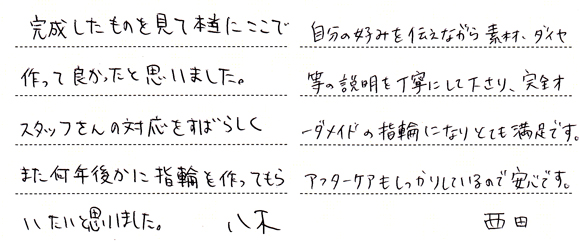 完成したものを見て本当にここで
作って良かったと思いました。
スタッフさんの対応もすばらしく
また何年後かに指輪を作ってもら
いたいと思いました。 八木
自分の好みを伝えながら素材、ダイヤ
等の説明を丁寧にして下さり、完全オ
ーダメイドの指輪になりとても満足です。
アフターケアもしっかりしているので安心です。
西田